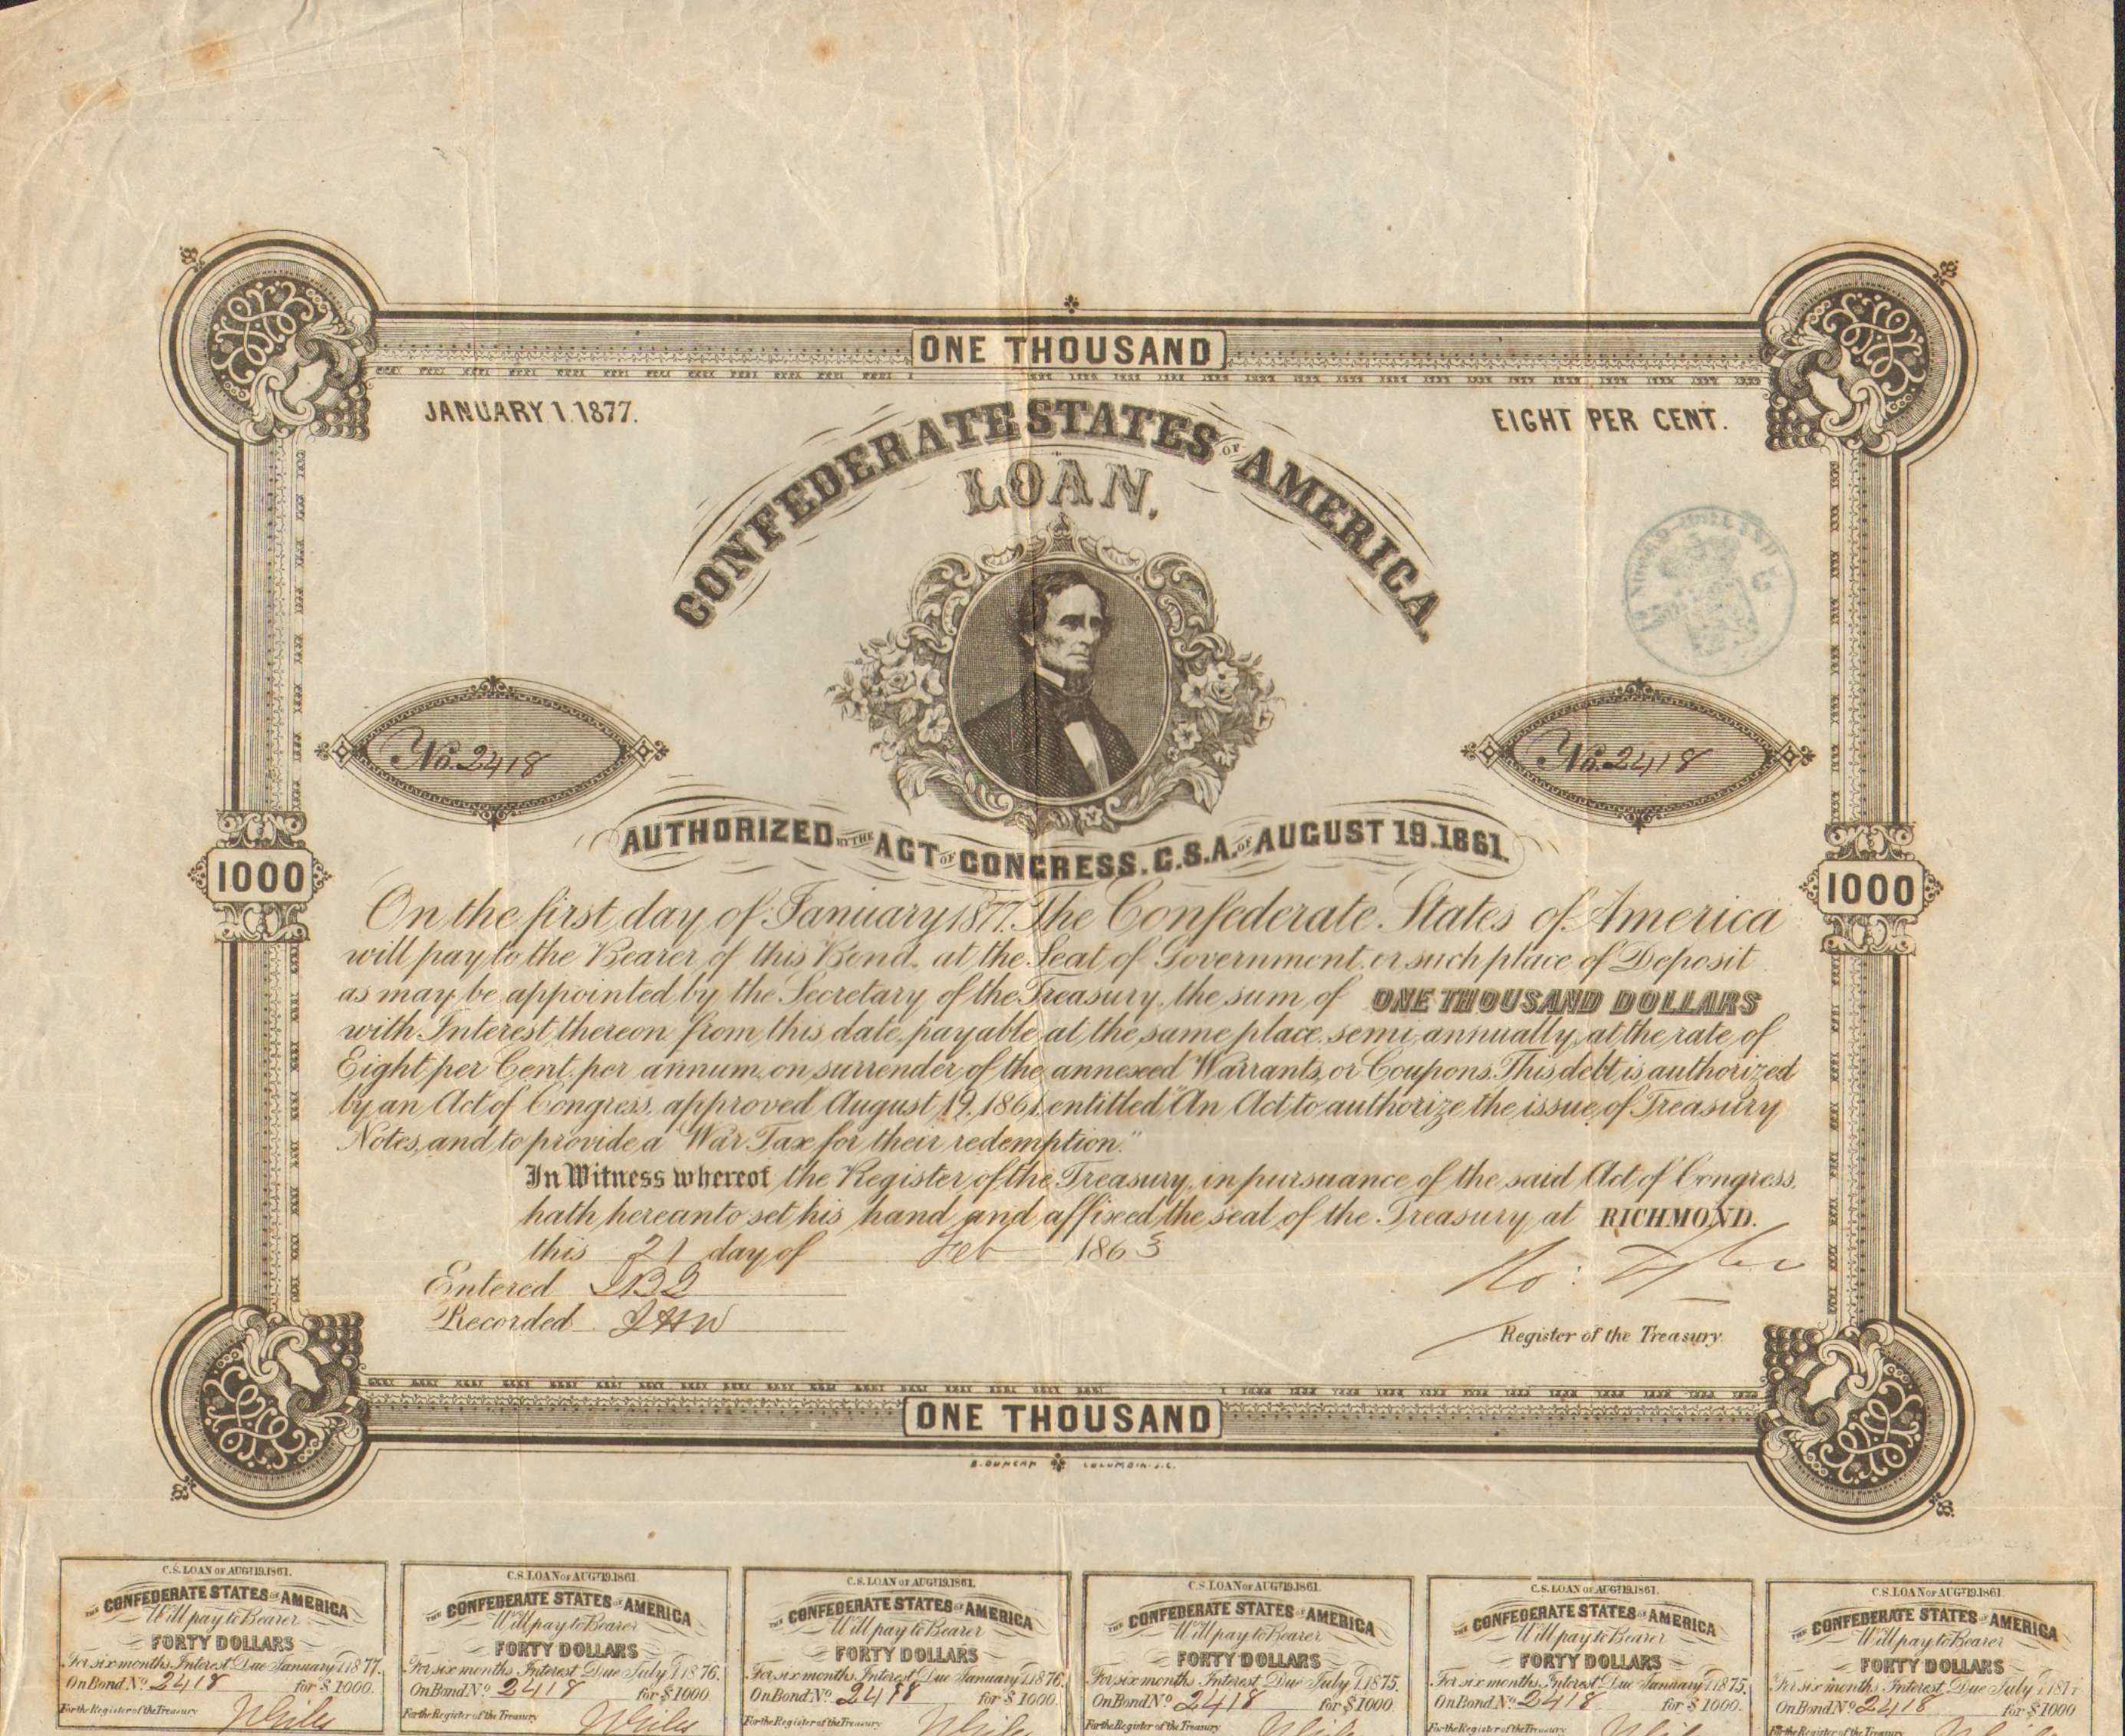 ONE THOUSAND
JANUARY 1. 1877.
EIGHT PER CENT.
CONFEDERATE STATES OF AMERICA.
LOAN.
No. 2418
No. 2418
AUTHORIZED BY THE ACT OF CONGRESS. C.S.A. OF AUGUST 19. 1861.
1000
1000
On the first day of January 1877. The Confederate States of America
will pay to the Bearer of this Bond, at the Seat of Government, or such place of Deposit
as may be appointed by the Secretary of the Treasury, the sum of ONE THOUSAND DOLLARS
with Interest thereon from this date, payable at the same place semi annually, at the rate of
Eight per Cent. per annum, on surrender of the annexed Warrants, or Coupons. This debt is authorized
by an Act of Congress, approved August 19, 1861, entitled "An Act to authorize the issue of Treasury
Notes, and to provide a War Tax for their redemption."
In Witness whereof the Register of the Treasury, in pursuance of the said Act of Congress,
hath hereunto set his hand and affixed the seal of the Treasury, at RICHMOND.
this 21 day of Feb 1863
Entered
Recorded
Ro: Tyler
Register of the Treasury.
ONE THOUSAND
B. DUNCAN COLUMBIA S.C.
C.S. LOAN OF AUGT 19.1861.
THE CONFEDERATE STATES OF AMERICA
Will pay to Bearer
FORTY DOLLARS
For six months Interest Due January 1 1877.
On Bond No 2418 for $ 1000.
For the Register of the Treasury
C.S. LOAN OF AUGT 19.1861.
THE CONFEDERATE STATES OF AMERICA
Will pay to Bearer
FORTY DOLLARS
For six months Interest Due July 1 1876.
On Bond No 2418 for $ 1000
For the Register of the Treasury
C.S. LOAN OF AUGT 19.1861.
THE CONFEDERATE STATES OF AMERICA
Will pay to Bearer
FORTY DOLLARS
For six months Interest Due January 1 1876.
On Bond No 2418 for $ 1000.
For the Register of the Treasury
C.S. LOAN OF AUGT 19.1861.
THE CONFEDERATE STATES OF AMERICA
Will pay to Bearer
FORTY DOLLARS
For six months Interest Due July 1 1875.
On Bond No 2418 for $ 1000
For the Register of the Treasury
C.S. LOAN OF AUGT 19.1861.
THE CONFEDERATE STATES OF AMERICA
Will pay to Bearer
FORTY DOLLARS
For six months Interest Due January 1 1875.
On Bond No 2418 for $ 1000.
For the Register of the Treasury
C.S. LOAN OF AUGT 19.1861.
THE CONFEDERATE STATES OF AMERICA
Will pay to Bearer
FORTY DOLLARS
For six months Interest Due July 1
On Bond No 2418 for $ 1000
For the Register of the Treasury